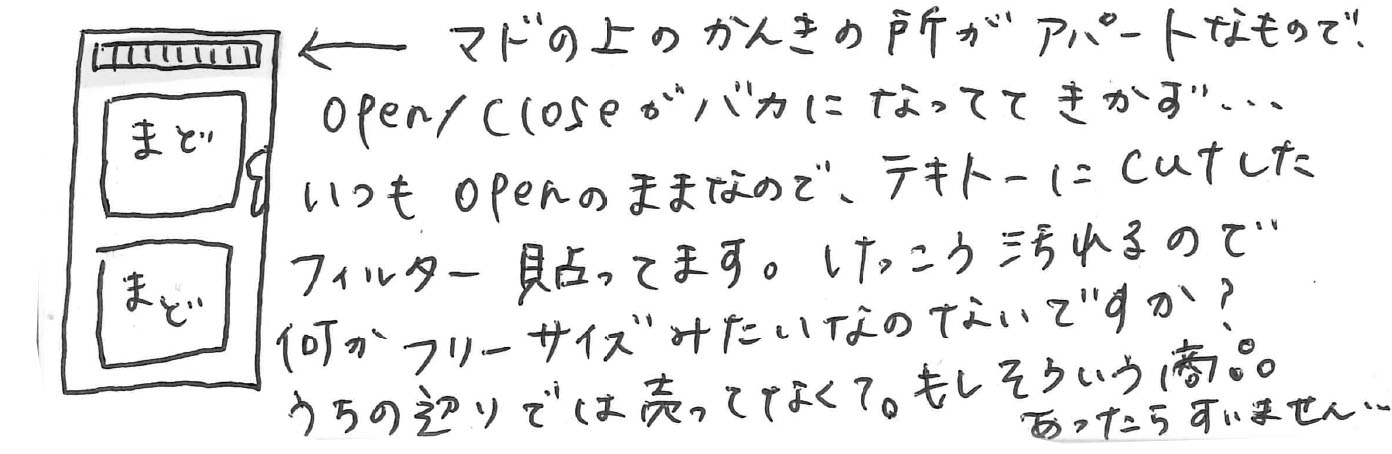 マドの上のかんきの所がアパートなもので、
open/closeがバカになっててきかず…
いつもopenのままなので、テキトーにcutした
フィルター貼ってます。けっこう汚れるので
何かフリーサイズみたいなのないですか?
うちの辺りでは売ってなくて。もしそういう商品
あったらすいません…
まど
まど